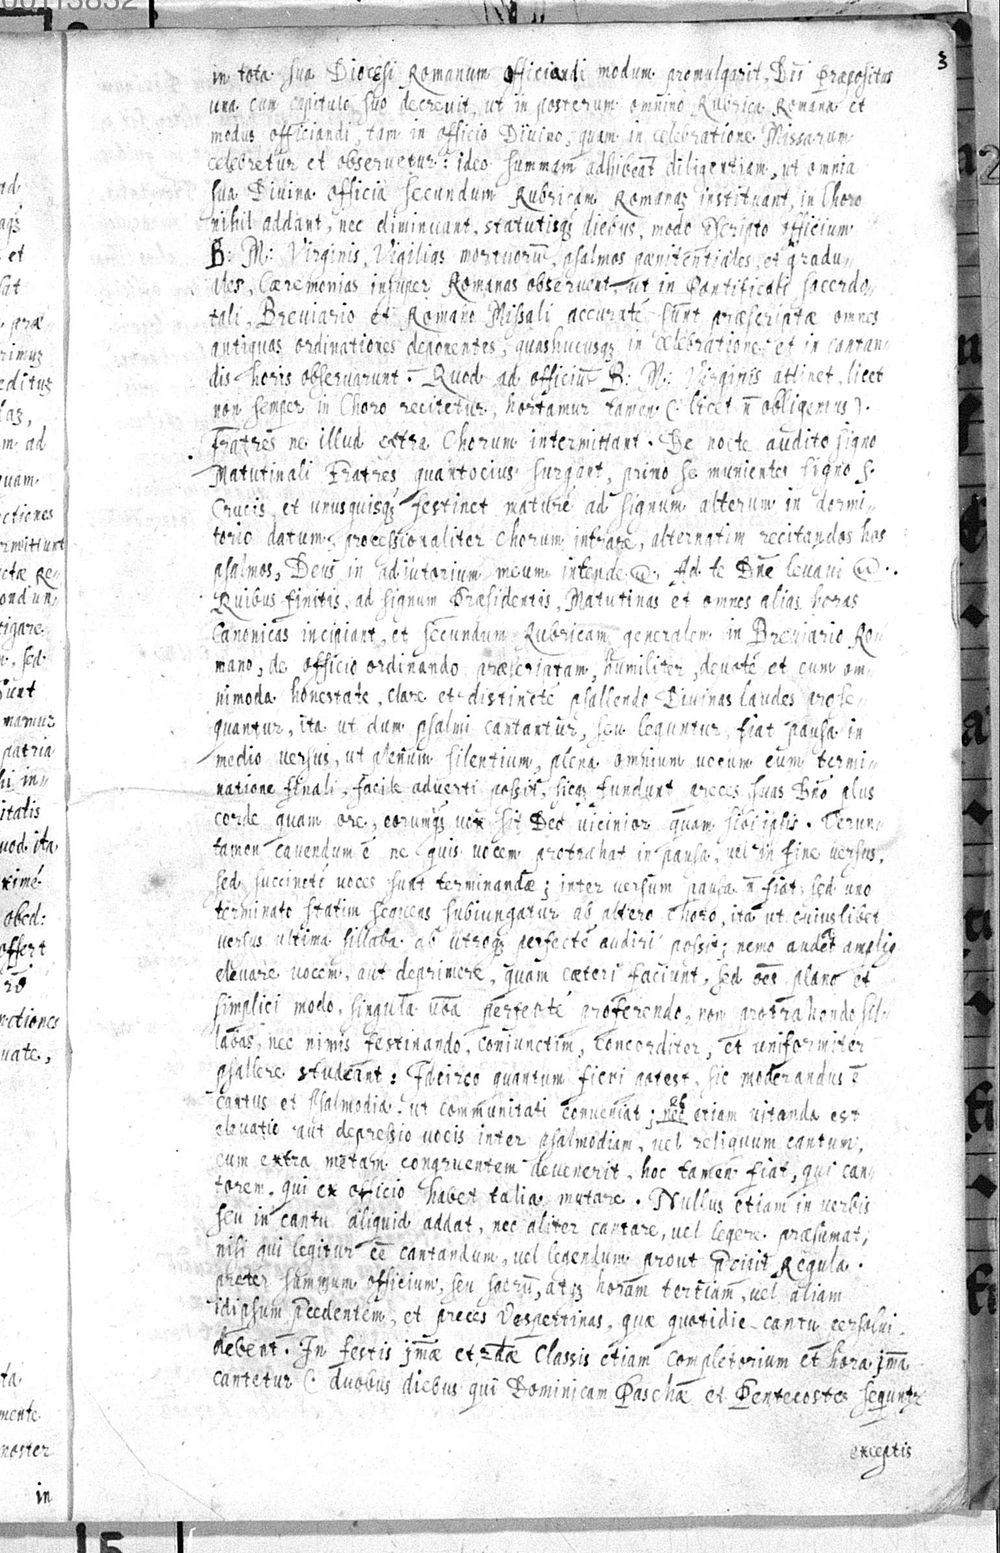 3
in tota sua Diocesi Romanum officiandi modum promulgarit, Dñs Præpositus
una cum capitulo suo decrevit, ut in posterum omnino Rubrica Romana et
modus officiandi, tam in officio Divino, quam in celebratione Missarum
celebretur et observetur: ideo summam adhibeãt diligentiam, ut omnia
sua Divina officia secundum Rubricam Romanam instituant, in Choro
nihil addant, nec diminuant, statutisq; diebus, modo pscripto officium
B: M: Virginis, Vigilias mortuorũ, psalmos pœnitentiales, et gradu„
ales, Cæremonias insuper Romanas observent, ut in Pontificali sacerdo„
tali, Breviario et Romano Missali accuraté sunt præscriptæ omnes
antiquas ordinationes deponentes, quas hucusq; in celebratione, et in cantan„
dis horis observarunt. Quod ad officiũ B: M: Virginis attinet, licet
non semper in Choro recitetur, hortamur tamen (licet ñ obligemus)
Fratres ne illud extra Chorum intermittant. De nocte audito signo
Matutinali Fratres quantocius surgant, primo se munientes signo S.
Crucis, et unusquisq; festinet maturé ad signum alterum in dormi„
torio datum, processionaliter Chorum intrare, alternatim recitandos hos
psalmos, Deus in adiutorium meum intende Ad te Dñe levavi
Quibus finitis, ad signum Præsidentis, Matutinas et omnes alias horas
Canonicas incipiant, et secundum Rubricam generalem in Breviario Ro„
mano, de officio ordinando præscriptam, humiliter, devoté et cum om„
nimoda honestate, clare et distincté psallendo Divinas laudes prose„
quantur, ita ut dum psalmi cantantur, seu leguntur, fiat pausa in
medio versus, ut plenum silentium, plena omnium vocum cum termi„
natione finali, facile adverti possit, sicq; fundunt preces suas Dño plus
corde quam ore, eorumq; vox sit Deo vicinior quam sibi ipsis. Verun„
tamen cavendum ẽ ne quis vocem protrahat in pausa, vel in fine versus,
sed succincté voces sunt terminandæ; inter versum pausa ñ fiat, sed uno
terminato statim sequens subiungatur ab altero choro, ita ut cuiuslibet
versus ultima sillaba ab utroq; perfecté audiri possit; nemo audeat amplius
elevare vocem, aut deprimere, quam cæteri faciunt, sed oẽs plano et
simplici modo, singula vba perfecté proferendo, non protrahendo sil„
labas, nec nimis festinando, coniunctim, concorditer, et uniformiter
psallere studeant: Idcirco quantum fieri potest, sic moderandus ẽ
cantus et Psalmodia, ut communitati conveniat; etiam vitanda est
elevatio aut depressio vocis inter psalmodiam, vel reliquum cantum,
cum extra metam congruentem devenerit, hoc tamen fiat, qui can„
torem, qui ex officio habet talia mutare. Nullus etiam in verbis
seu in cantu aliquid addat, nec aliter cantare, vel legere præsumat,
nisi qui legitur eẽ cantandum, vel legendum prout pcipit Regula.
preter summum officium, seu sacrũ, atq; horam tertiam, vel aliam
idipsum pcedentem, et preces Vespertinas, quæ quotidie cantu persolvi
debent. In festis jmæ et 2dæ Classis etiam completorium et hora jma
cantetur (duobus diebus qui Dominicam Paschæ et Pentecostes sequuntr
exceptis